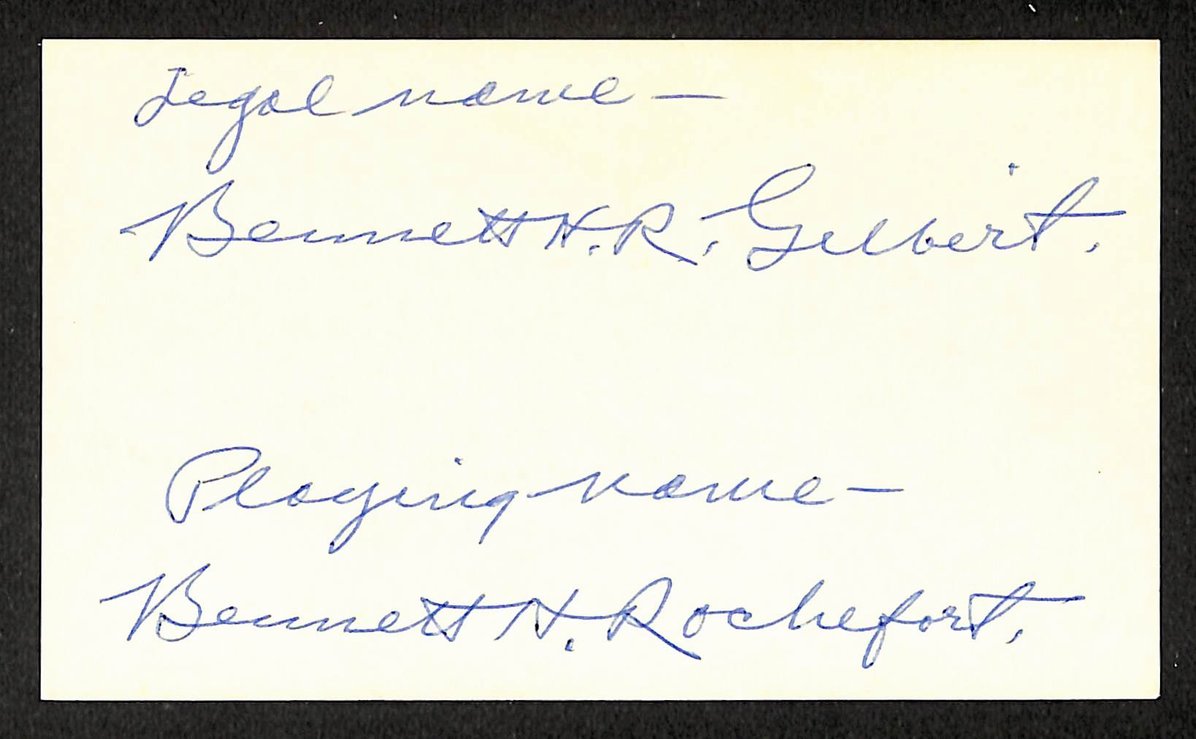 Legal name —
Bennett H.R. Gilbert.
Playing name —
Bennett H. Rochefort.